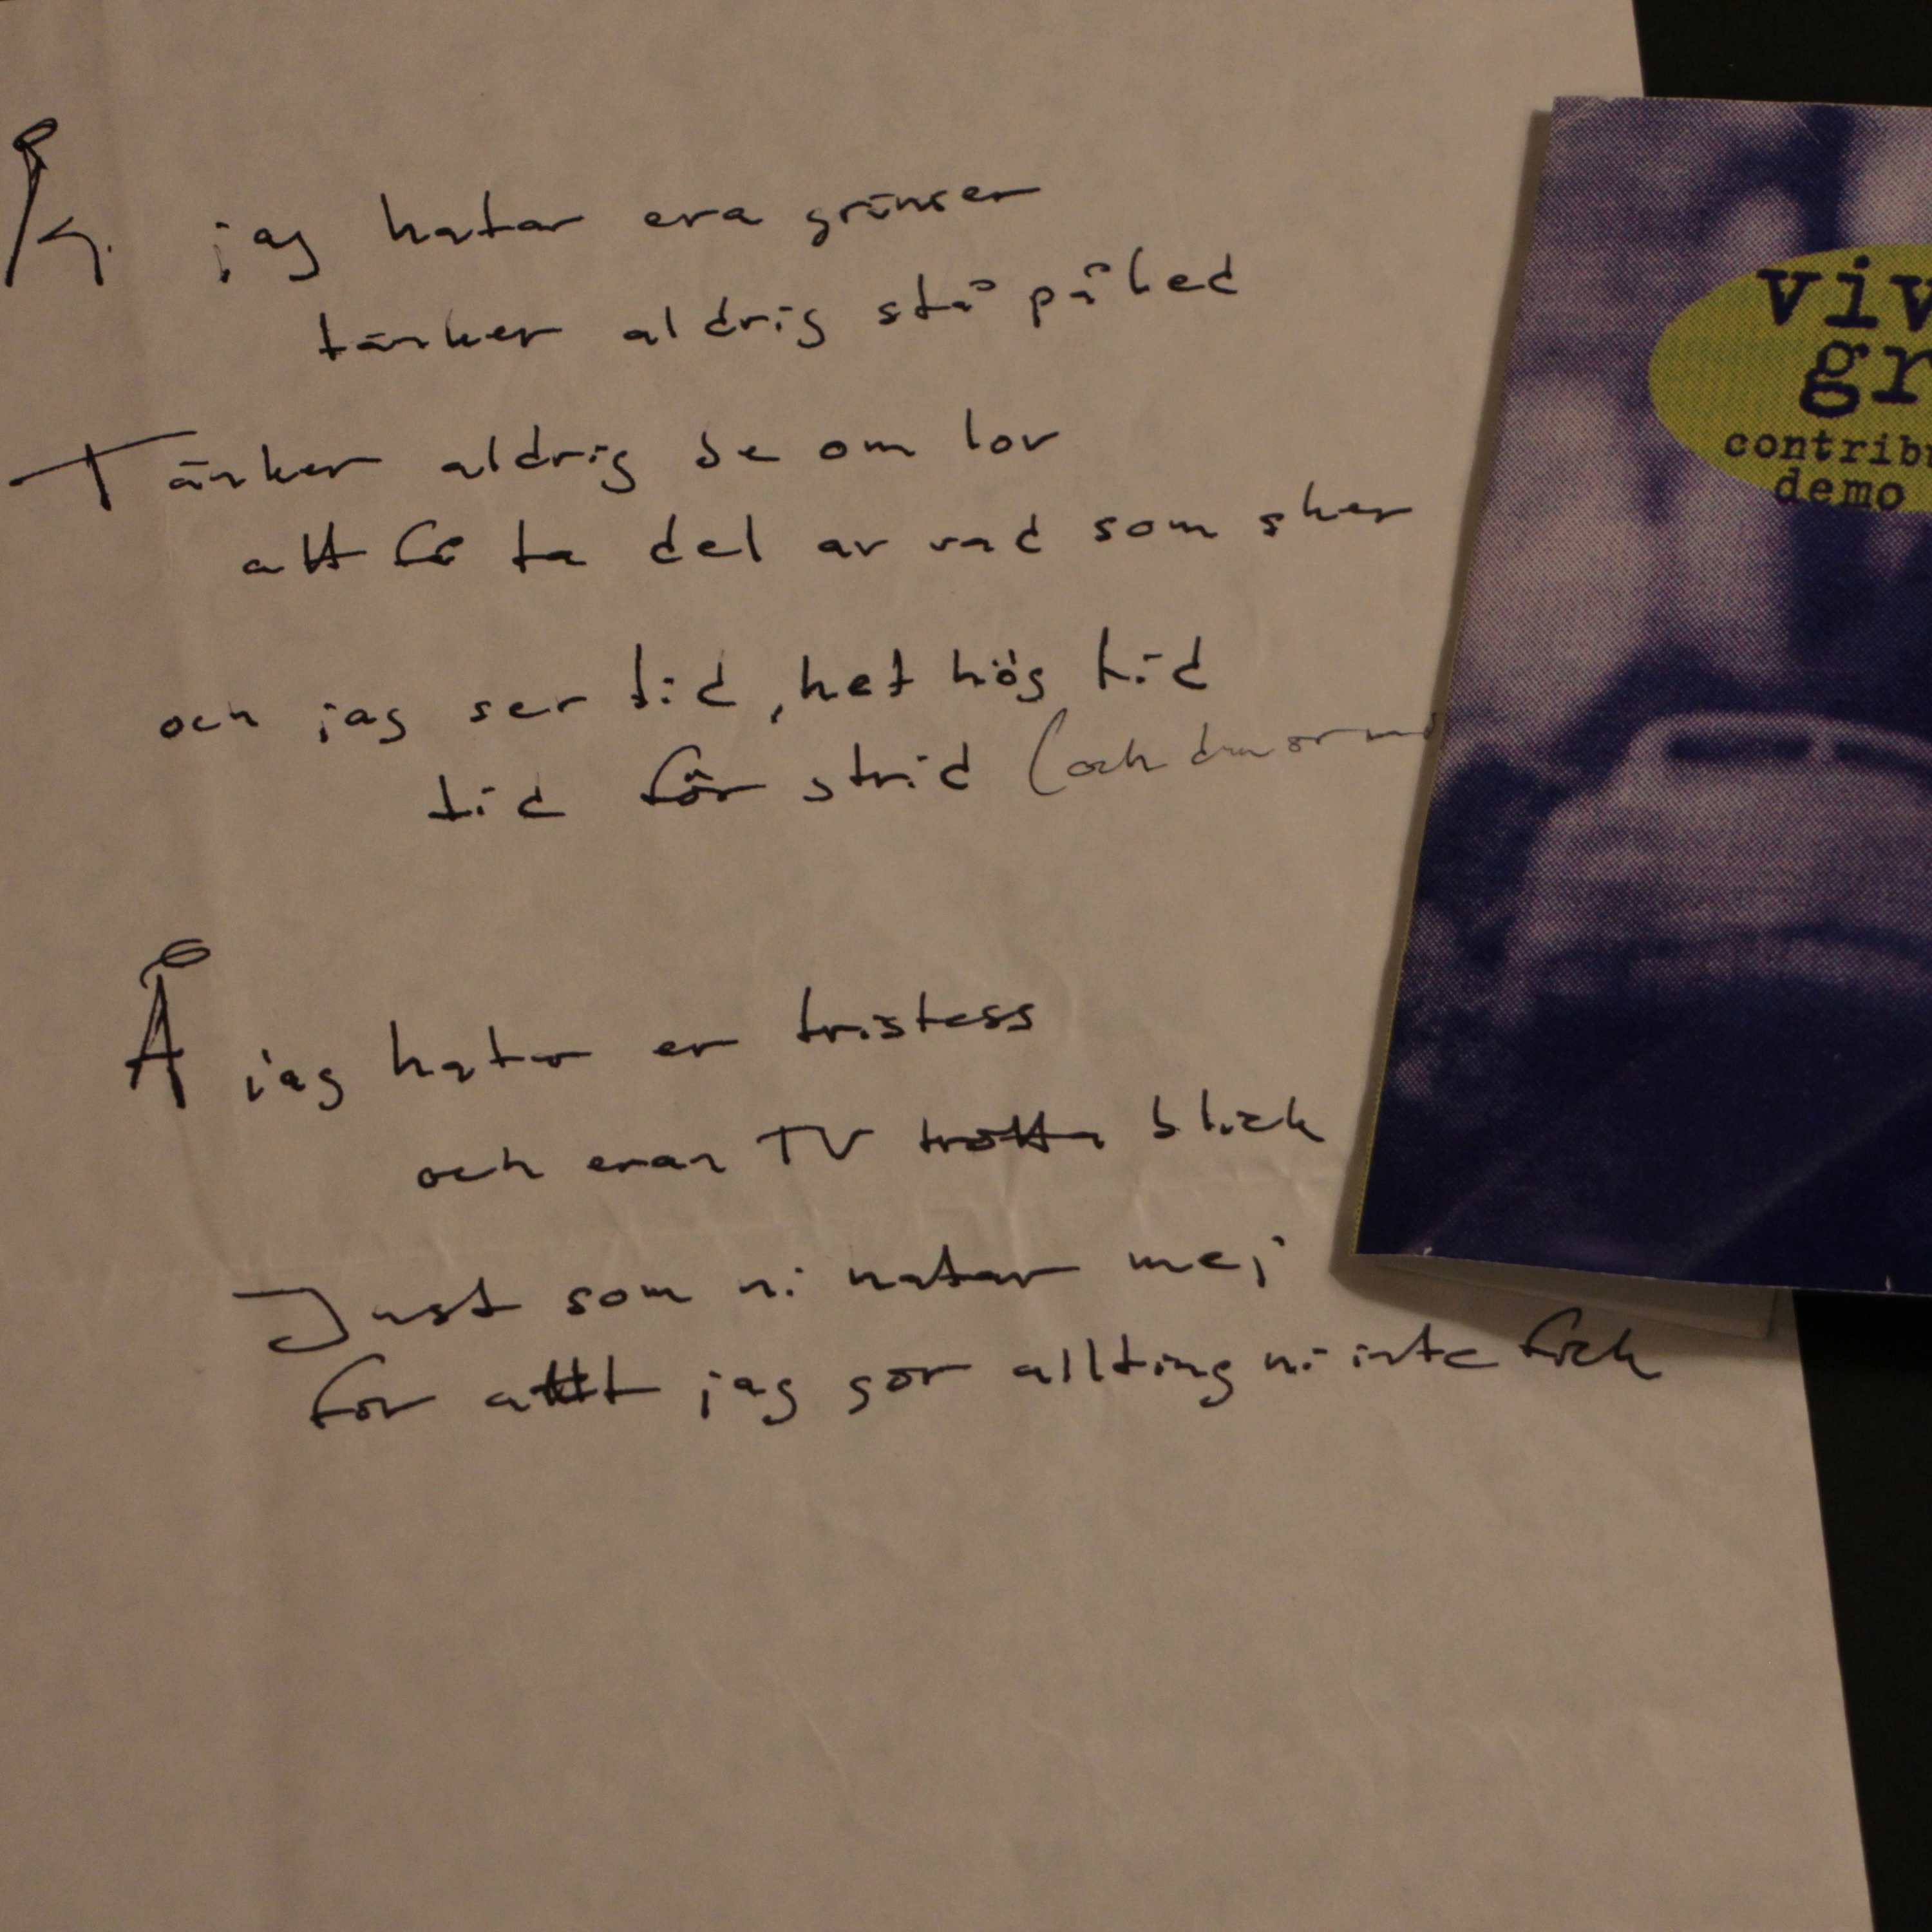 Å jag hatar era gränser
tänker aldrig stå på led
Tänker aldrig be om lov
att få ta del av vad som sker
och jag ser tid, het hög tid
tid för strid (och
Å jag hatar er tristess
och eran TV trötta blick
Just som ni hatar mej
för att jag gör allting ni inte fick
viv
gr
contribu
demo